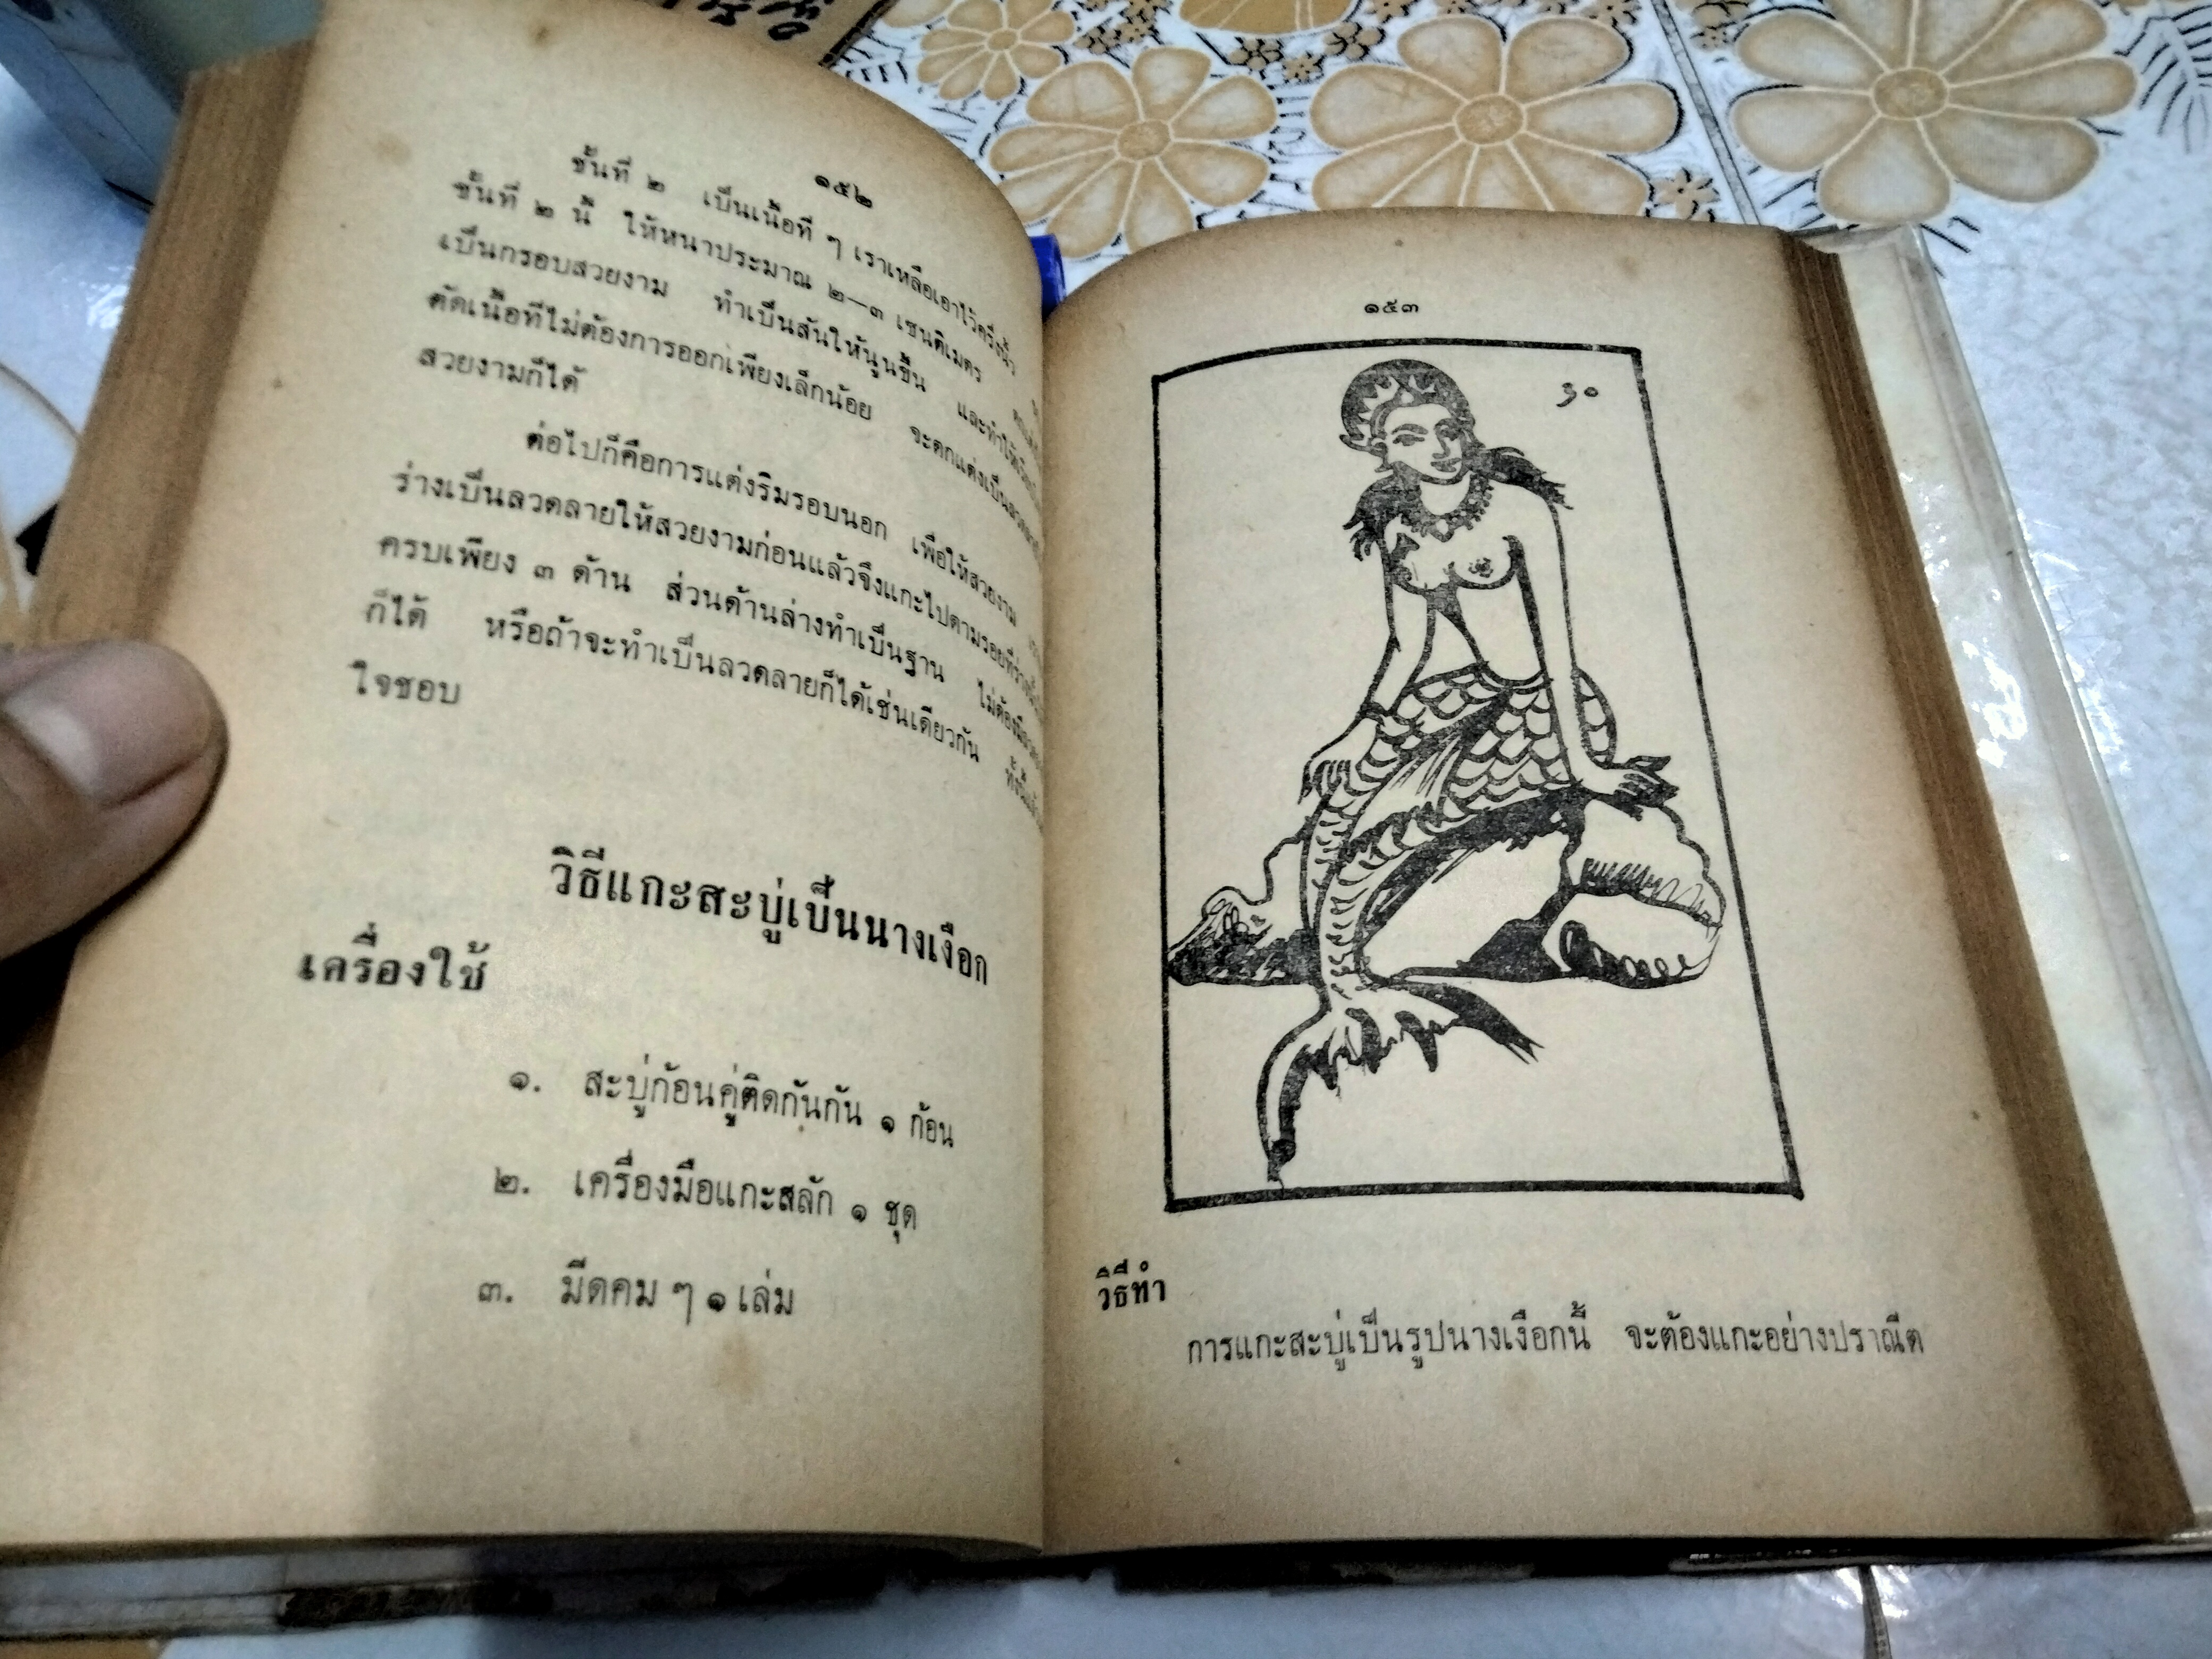 ๑๕๒
ชั้นที่ ๒ เป็นเนื้อที่ ๆ เราเหลือเอาไว้ครึ่งนิ้ว
ชั้นที่ ๒ นี้ ให้หนาประมาณ ๒—๓ เซนติเมตร
เป็นกรอบสวยงาม ทำเป็นสันให้นูนขึ้น และทำให้
ตัดเนื้อที่ไม่ต้องการออกเพียงเล็กน้อย จะตกแต่งเป็นลวดลาย
สวยงามก็ได้
ต่อไปก็คือการแต่งริมรอบนอก เพื่อให้สวยงาม
ร่างเป็นลวดลายให้สวยงามก่อนแล้วจึงแกะไปตามรอยที่ร่าง
ครบเพียง ๓ ด้าน ส่วนด้านล่างทำเป็นฐาน ไม่ต้องมี
ก็ได้ หรือถ้าจะทำเป็นลวดลายก็ได้เช่นเดียวกัน
ใจชอบ
วิธีแกะสะบู่เป็นนางเงือก
เครื่องใช้
๑. สะบู่ก้อนคู่ติดกันกัน ๑ ก้อน
๒. เครื่องมือแกะสลัก ๑ ชุด
๓. มีดคม ๆ ๑ เล่ม
๑๕๓
๖๐
วิธีทำ
การแกะสะบู่เป็นรูปนางเงือกนี้ จะต้องแกะอย่างปราณีต